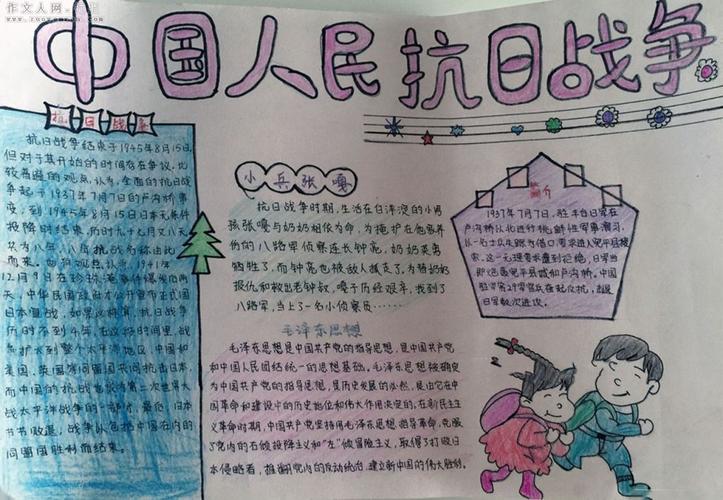 作文人网
中国人民抗日战争
抗日战争
抗日战争结束于1945年8月15日,
但对于其开始的时间存在争议,比
较普遍的观点认为,全面的抗日战
争起于1937年7月7日的卢沟桥事
变,到1945年8月15日日本无条件
投降时结束,
为八年,八年抗战名称由此
而来。 1941年
12月9日在珍珠港事件爆发后两
天,中华民国政府才公开宣布正式同
日本宣战,如果以这样算,抗日战争
历时不到4年,在这段时间里,战
兵扩大到整个太平洋地区,中国和
美国、英国等同盟国共同抗击日本,
而中国的抗战也成为第二次世界大
战太平洋战争的一部分,最后,日本
节节败退,战争以包括中国在内的
同盟国胜利而结束。
小兵张嘎
抗日战争时期,生活在白洋淀的小男
孩张嘎与奶奶相依为命,为掩护在他家养
伤的八路军侦察连长钟亮,奶奶英勇
牺牲了,而钟亮也被敌人抓走了,为替奶奶
报仇和救出老钟叔,嘎子历经艰辛,找到了
八路军,当上了一名小侦察员……
毛泽东思想
毛泽东思想是中国共产党的指导思想,是中国共产党
和中国人民团结统一的思想基础,毛泽东思想被确定
为中国共产党的指导思想,是历史发展的必然,是由它在中
国革命和建设中的历史地位和伟大作用决定的,在新民主主
义革命时期,中国共产党坚持用毛泽东思想指导革命,克服
了党内的右倾投降主义和"左"倾冒险主义,取得了打败日
本侵略者,推翻 的反动统治,建立新中国的伟大胜利。
简介
1937年7月7日,驻丰台日军在
卢沟桥以北进行挑衅性军事演习,
以一名士兵失踪为借口要求进入宛平县搜
索,这一无理要求遭到拒绝,日军当
即 宛平县城和卢沟桥。中国
驻军第29军官兵奋起抗击,击退
日军数次进攻。